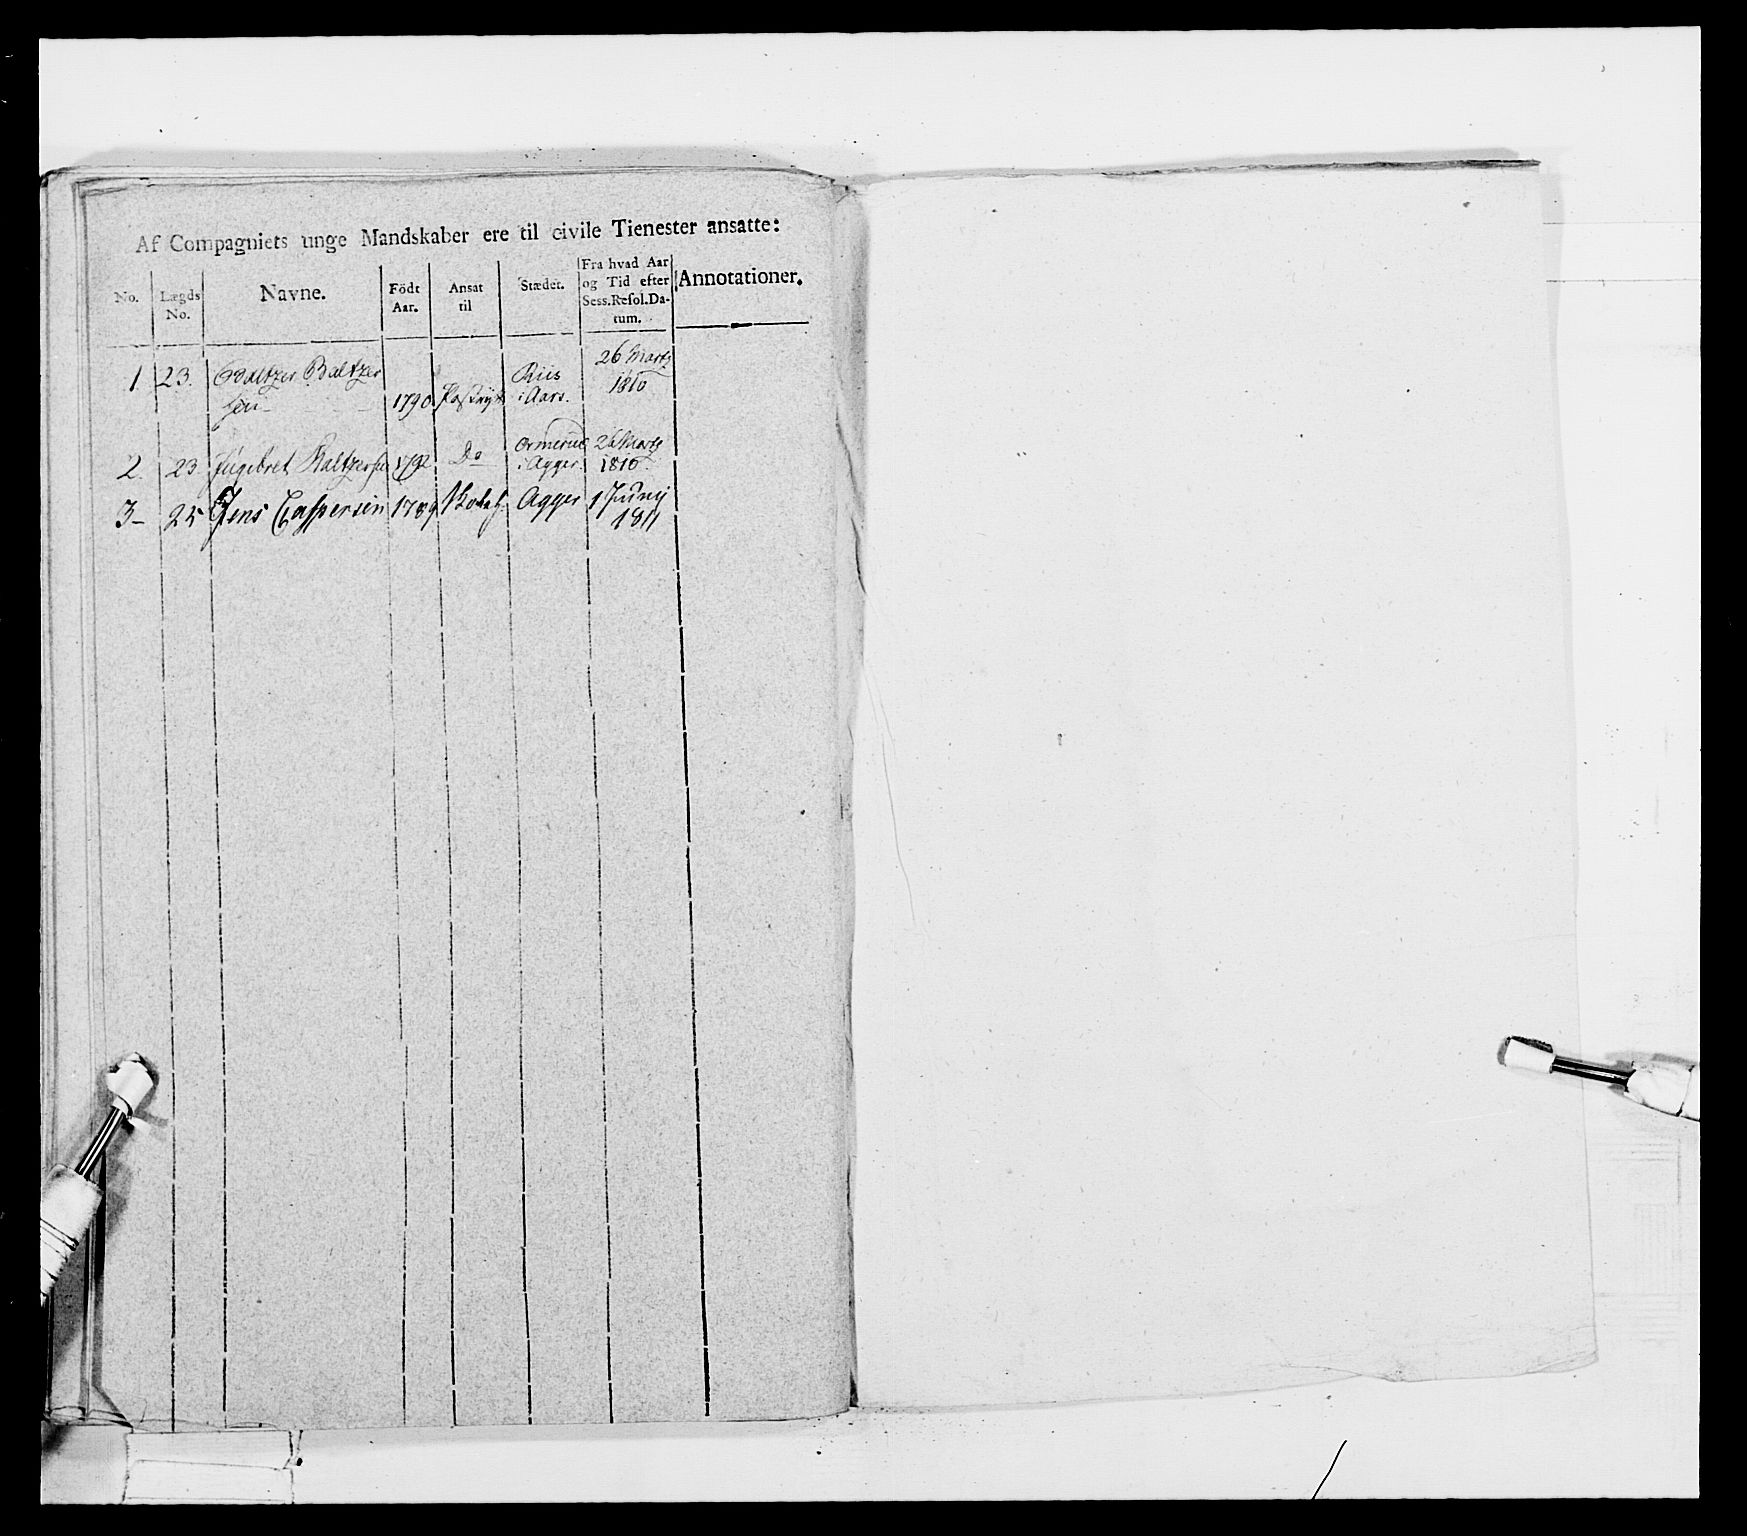 Af Compagniets unge Mandskaber ere til civile Tienester ansatte:
No. Lægds No. Navne. Födt Aar. Ansat til Stædet. Fra hvad Aar og Tid efter Sess.Resol.Da-tum. Annotationer.
1 23. Baltzer Baltzer 26 Martz
sen 1790 Riis i Aars. 1810
2. 23 Baltzersen 1792 Do Ormerue 26 Martz
i Agger. 1810.
3- 25 Jens Caspersen 1789 Agger 1 Junij
1811